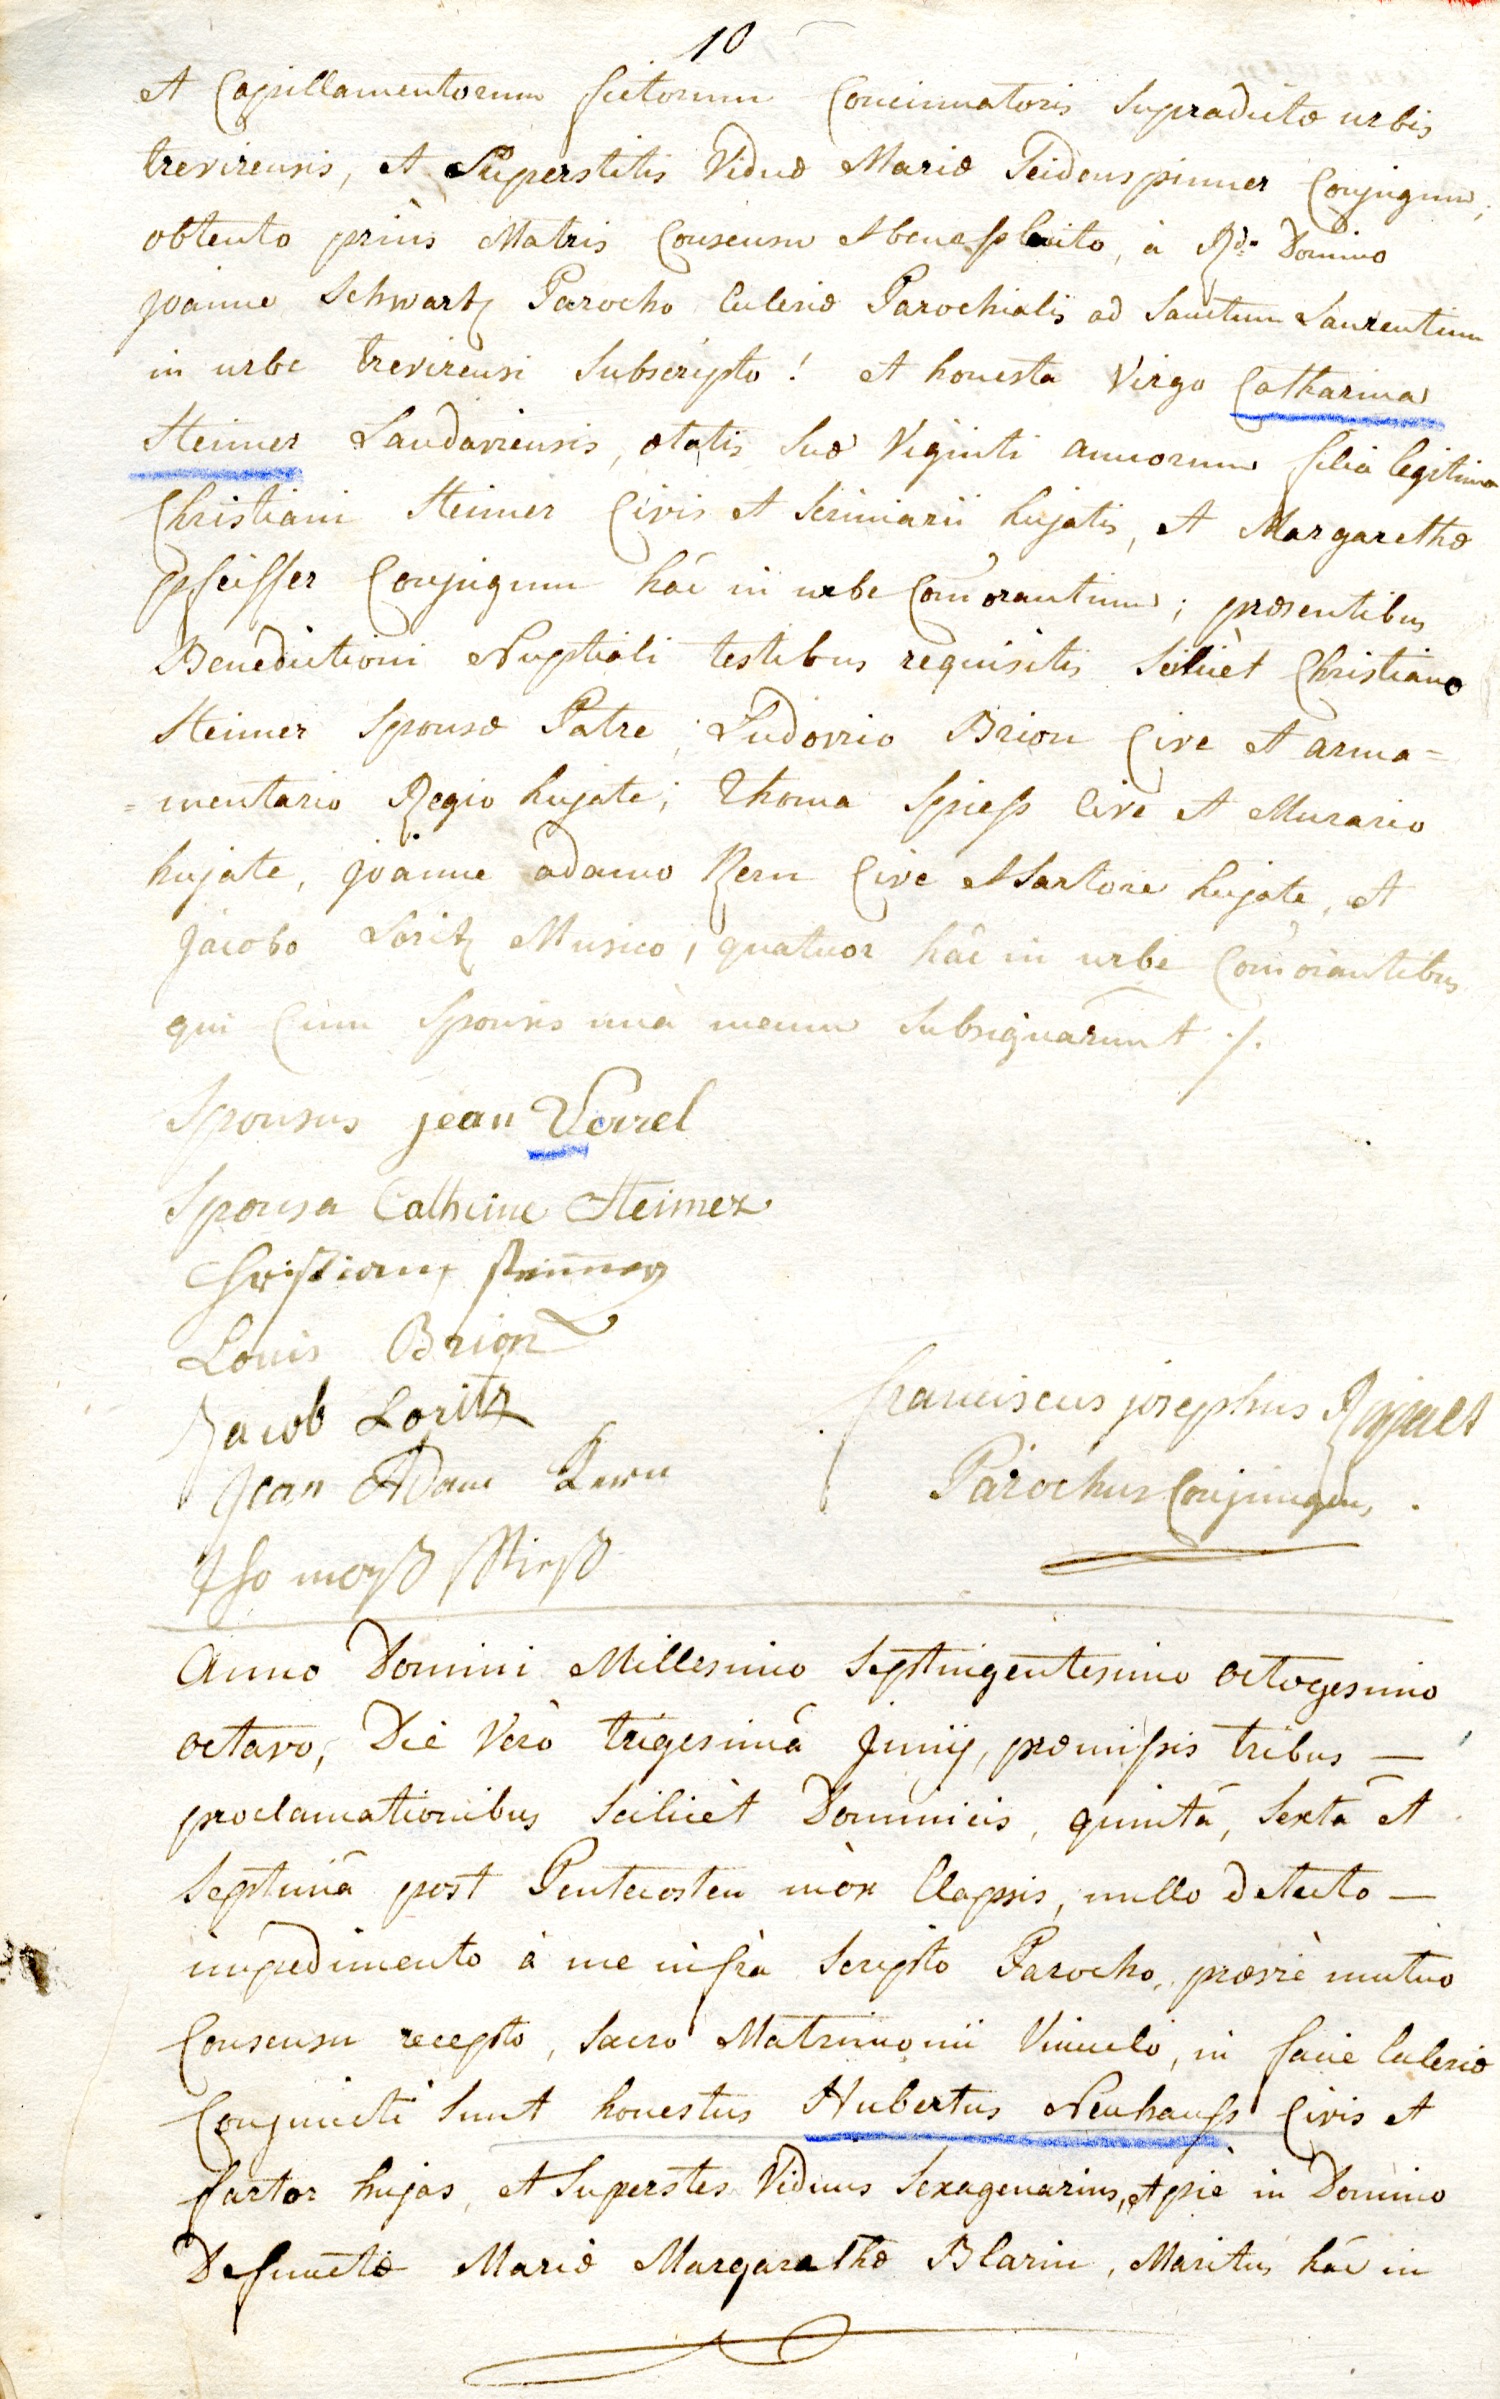 10
et Capillamentorum fictorum Concinnatoris supradictæ urbis
trevirensis, et Superstitis Viduæ Mariæ Seidenspinner Conjugum,
obtento priùs Matris Consensu et beneplacito, à Rdo Domino
joanne Schwartz Parocho Eclesiæ Parochialis ad Sanctum Laurentium
in urbe trevirensi Subscripto! et honesta Virgo Catharina
Steimer Landaviensis, ætatis suæ Viginti annorum filia legitima
Christiani Steimer Civis et Scriniarii hujatis, et Margarethæ
pfeiffer Conjugum hâc in urbe Com̄orantium; præsentibus
Benedictioni Nuptiali testibus requisitis scilicèt Christiano
Steimer Sponsæ Patre, Ludovico Brion Cive et arma=
=mentario Regio hujate; Thoma Spiess Cive et Murario
hujate, joanne adamo Kern Cive et Sartore hujate, et
jacobo Loritz Musico, quatuor hâc in urbe Com̄orantibus
qui Cum Sponsis unà mecum Subsignarunt ./.
Sponsus jean Verrel
Sponsa Catherine Steimer
Christianus Steimer
Louis Brion
Jacob Loritz
franciscus josephus
Jean Adam Kern
Parochus Conjungens.
Thomas Spieß
Anno Domini Millesimo Septingentesimo octogesimo
octavo, Die Verò trigesimâ Junij, præmissis tribus —
proclamationibus scilicèt Dominicis, quintâ, sextâ et
septimâ post Pentecosten mòx Elapsis, nullo detecto —
impedimento à me infrà scripto Parocho, præviè mutuo
Consensu recepto, sacro Matrimonii Vinculo, in facie Eclesiæ
Conjuncti sunt honestus Hubertus Neuhauss Civis et
fartor hujas, et Superstes Viduus Sexagenarius, et piè in Domino
Defunctæ Mariæ Margarethæ Blarin, Maritus hâc in